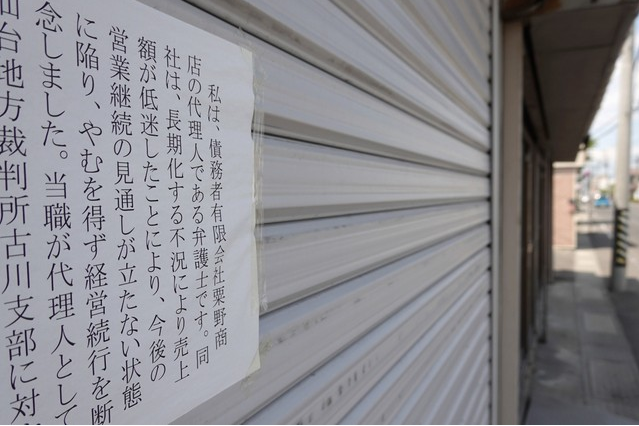 私は、債務者有限会社栗野商
店の代理人である弁護士です。同
社は、長期化する不況により売上
額が低迷したことにより、今後の
営業継続の見通しが立たない状態
に陥り、やむを得ず経営続行を断
念しました。当職が代理人として
仙台地方裁判所古川支部に対